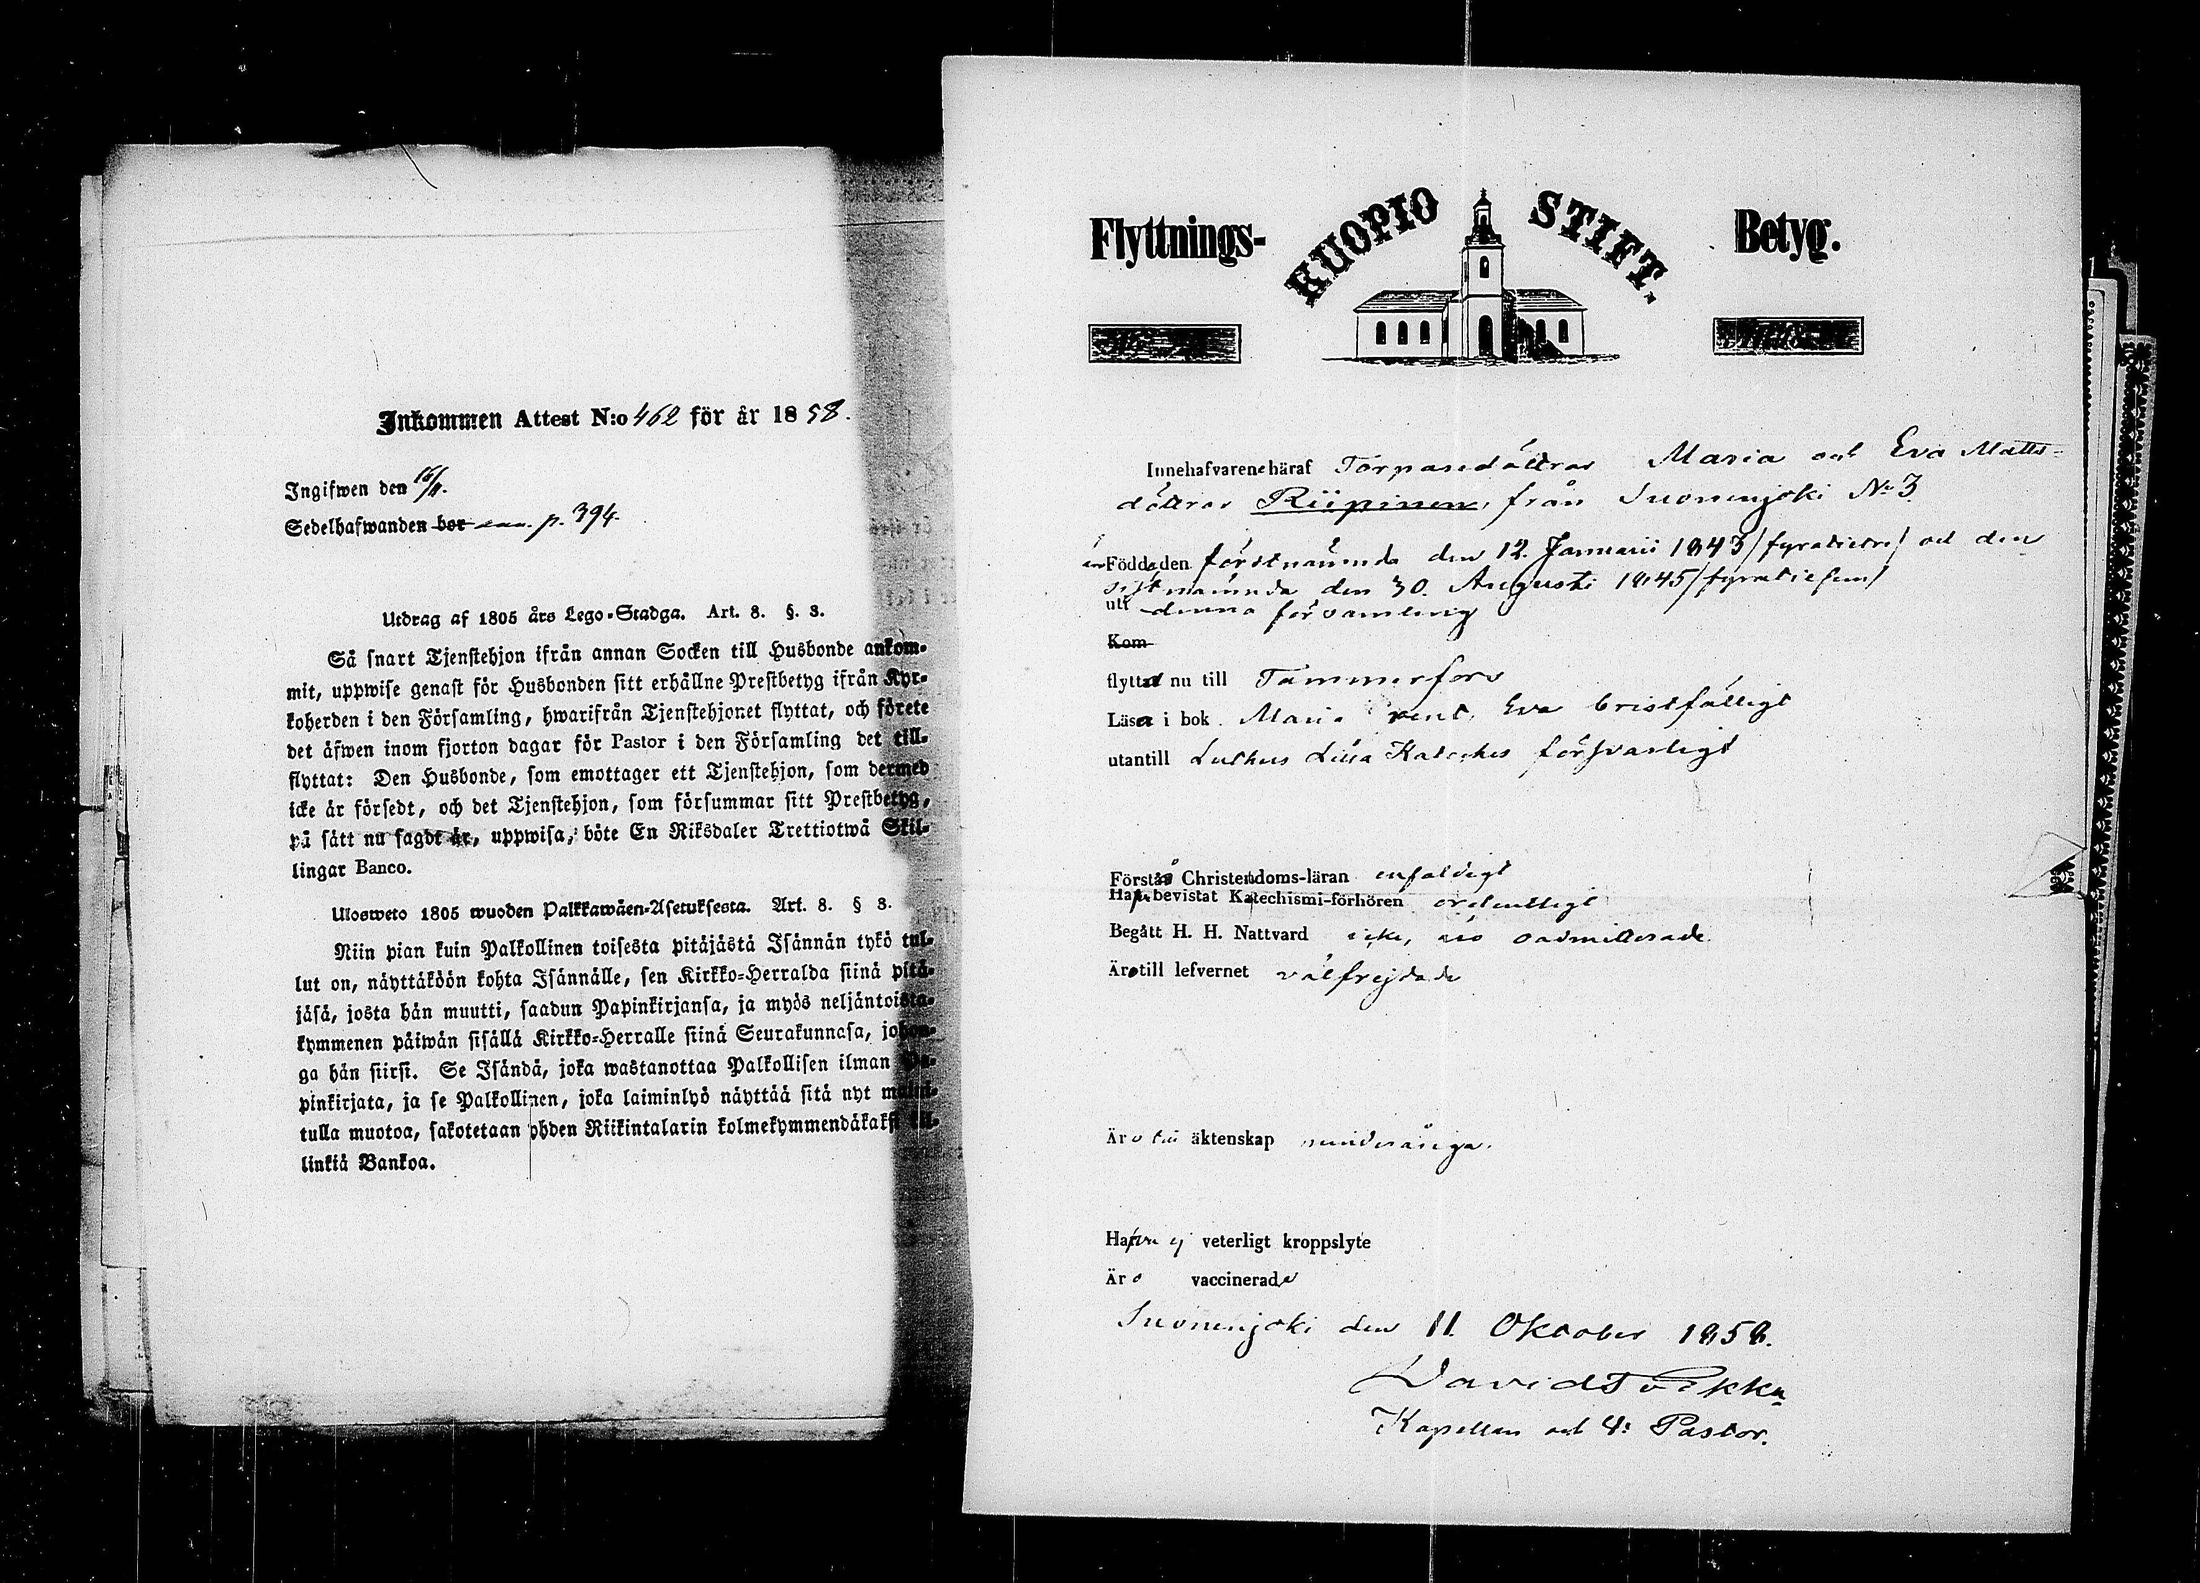 Inkommen Attest N:o 462 för år 1858.
Ingifwen den 16/11.
Sedelhafwanden bor p. 394.
Utdrag af 1805 års Lego-Stadga. Art. 8. §. 3.
Så snart Tjenstehjon ifrån annan Socken till Husbonde ankom-
mit, uppwise genast för Husbonden sitt erhållne Prestbetyg ifrån Kyr-
koherden i den Församling, hwarifrån Tjenstehjonet flyttat, och förete
det äfwen inom fjorton dagar för Pastor i den Församling det till-
flyttat: Den Husbonde, som emottager ett Tjenstehjon, som dermed
icke är försedt, och det Tjenstehjon, som försummar sitt Prestbetyg,
på sätt nu sagdt är, uppwisa, böte En Riksdaler Trettiotwå Skil-
lingar Banco.
Ulosweto 1805 wuoden Palkkawäen-Asetuksesta. Art. 8. § 3.
Niin pian kuin Palkollinen toisesta pitäjästä Isännän tykö tul-
lut on, näyttäköön kohta Isännälle, sen Kirkko-Herralda siinä pitä-
jäsä, josta hän muutti, saadun Papinkirjansa, ja myös neljäntoista-
kymmenen päiwän sisällä Kirkko-Herralle siinä Seurakunnasa, johon-
ga hän siirsi. Se Isändä, joka wastanottaa Palkollisen ilman Pa-
pinkirjata, ja se Palkollinen, joka laiminlyö näyttää sitä nyt maini-
tulla muotoa, sakotetaan yhden Riikintalarin kolmekymmendäkaksi kil-
linkiä Bankoa.
Flyttnings- KUOPIO STIFT. Betyg.
Innehafvarene häraf Torparedöttrar Maria och Eva Matts-
döttrar Riipinen, från Suonenjoki No 3
äro Födde den förstnämnda den 12. Januarii 1843 /fyratietre/ och den
sistnämnda den 30. Augusti 1845 /fyratiefem/
uti denna församling
Kom
flytta nu till Tammerfors
Läsa i bok Maria rent, Eva bristfälligt
utantill Luthers Lilla Kateches försvarligt
Förstå Christendoms-läran enfaldigt
Hafva bevistat Katechismi-förhören ordentligt
Begått H. H. Nattvard icke, äro oadmitterade
Äro till lefvernet välfrejdade
Äro till äktenskap minderåriga.
Hafva ej veterligt kroppslyte
Äro vaccinerade
Suonenjoki den 11. Oktober 1858.
David
Kapellan och V: Pastor.